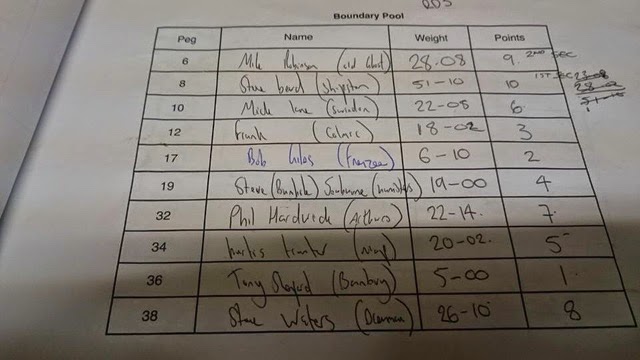 Boundary Pool
Peg Name Weight Points
6 Mike Robinson (old Ghost) 28-08 9 2ND SEC
8 Steve beard (Shipston) 51-10 10 1ST SEC
10 Mick lane (Swindon) 22-05 6
12 Frank (Colmic) 18-02 3
17 Bob Giles (Frenzee) 6-10 2
19 Steve (Bunfick) 19-00 4
32 Phil Hardwick (Arthurs) 22-14 7
34 20-02 5
36 Tony (Banbury) 5-00 1
38 Steve Waters (Drennan) 26-10 8